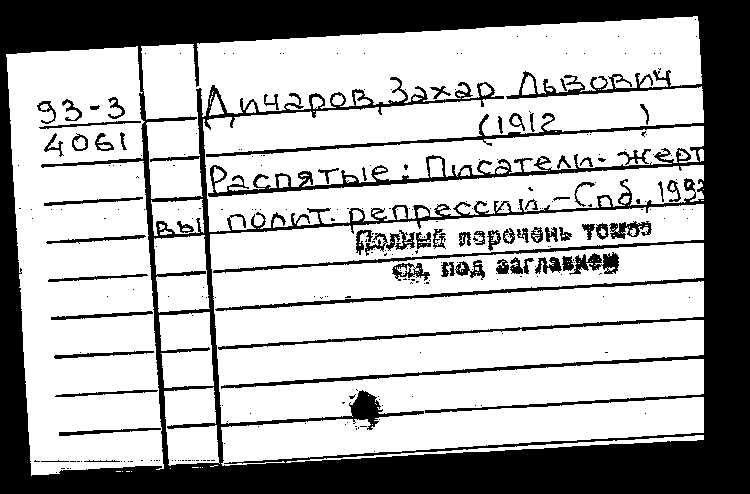 93-3 Дичаров, Захар Львович
4061 (1912 )
Распятые: Писатели - жерт
вы полит. репрессий. - Спб., 1993
Полный перечень томов
см. под заглавием